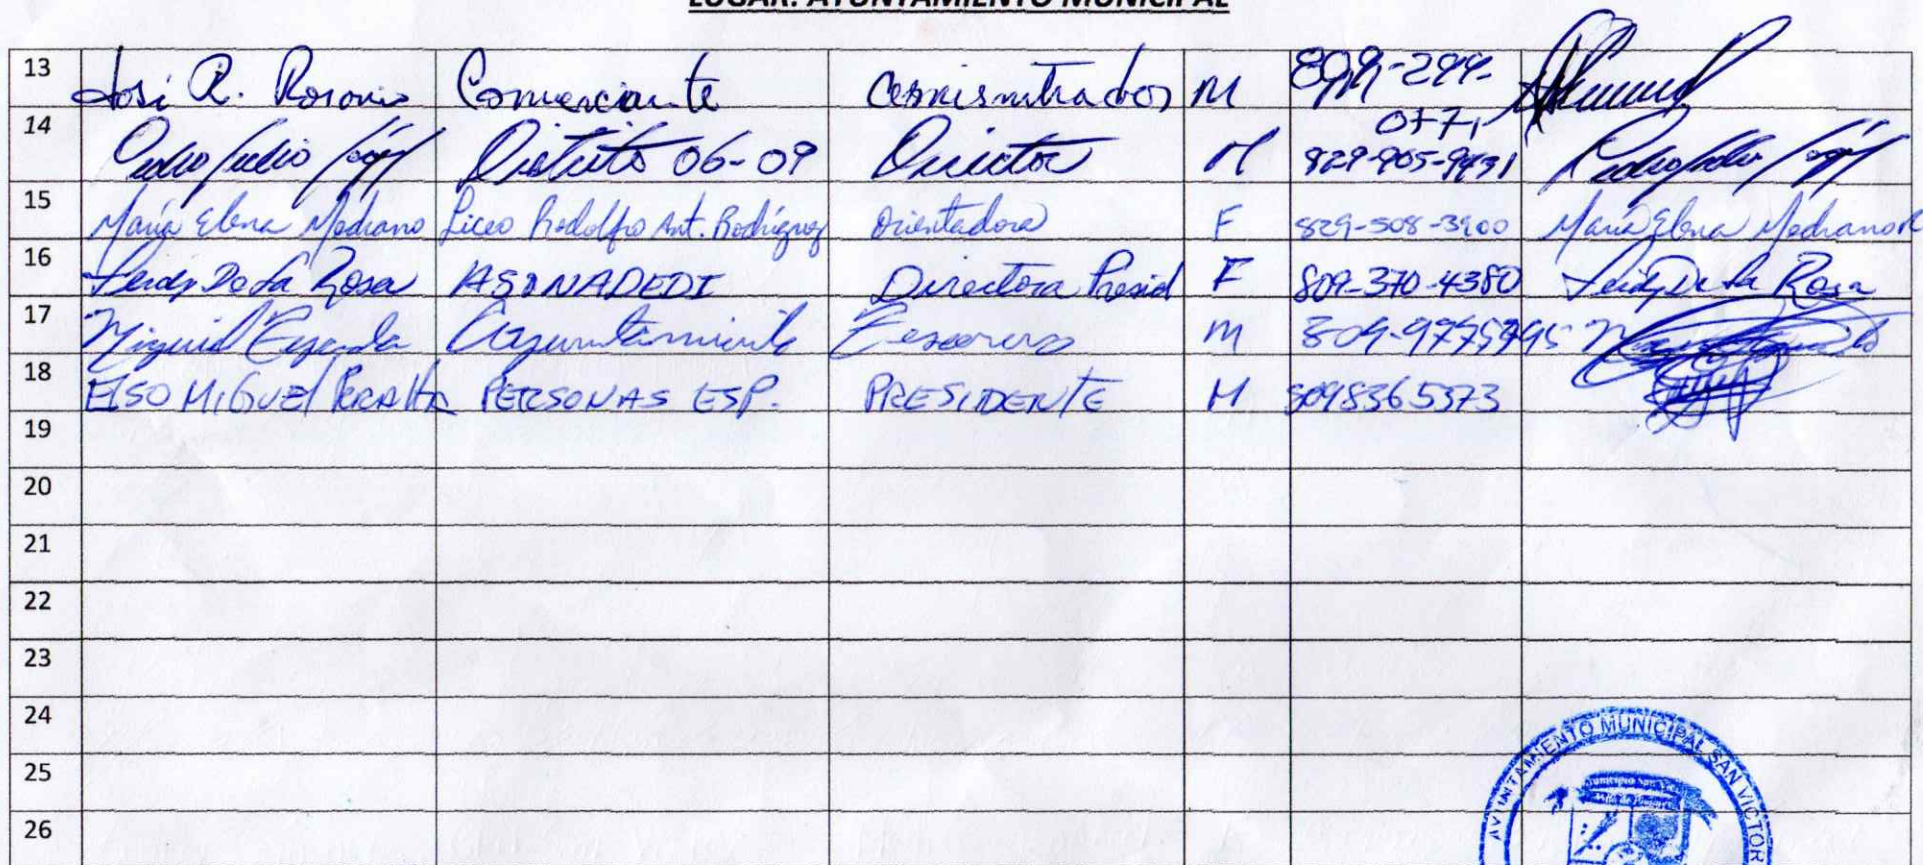 LUGAR: AYUNTAMIENTO MUNICIPAL
13 José R. Rosario Comerciante M 809-299-
14 Pedro Julio Distrito 06-09 Director M 829-905-9431
15 María Elena Medrano Liceo Rodolfo Ant. Rodríguez Orientadora F 829-508-3900 María Elena Medrano R
16 Leidy De La Rosa ASONADEDI Directora Presid F 809-370-4380 Leidy De La Rosa
17 Ayuntamiento Tesorero M 809-9775995
18 ELSO MIGUEL PERALTA PERSONAS ESP. PRESIDENTE M 8098365373
19
20
21
22
23
24
25
26
AYUNTAMIENTO MUNICIPAL SAN VICTOR